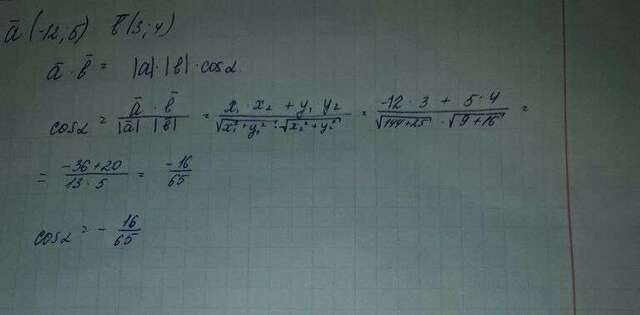 ā (-12; 5) b̄ (3; 4)
ā · b̄ = |ā| · |b̄| · cosα
cosα = (ā · b̄)/(|ā| · |b̄|) = (x₁ · x₂ + y₁ y₂)/(√(x₁² + y₁²) · √(x₂² + y₂²)) = (-12 · 3 + 5 · 4)/(√(144+25) · √(9+16)) =
= (-36+20)/(13 · 5) = -16/65
cosα = - 16/65